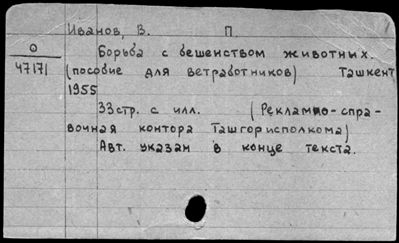 Иванов, В. П.
О
47171
Борьба с бешенством животных.
(пособие для ветработников) Ташкент
1955
33стр. с илл. (Рекламно-спра-
вочная контора Ташгорисполкома)
Авт. указан в конце текста.